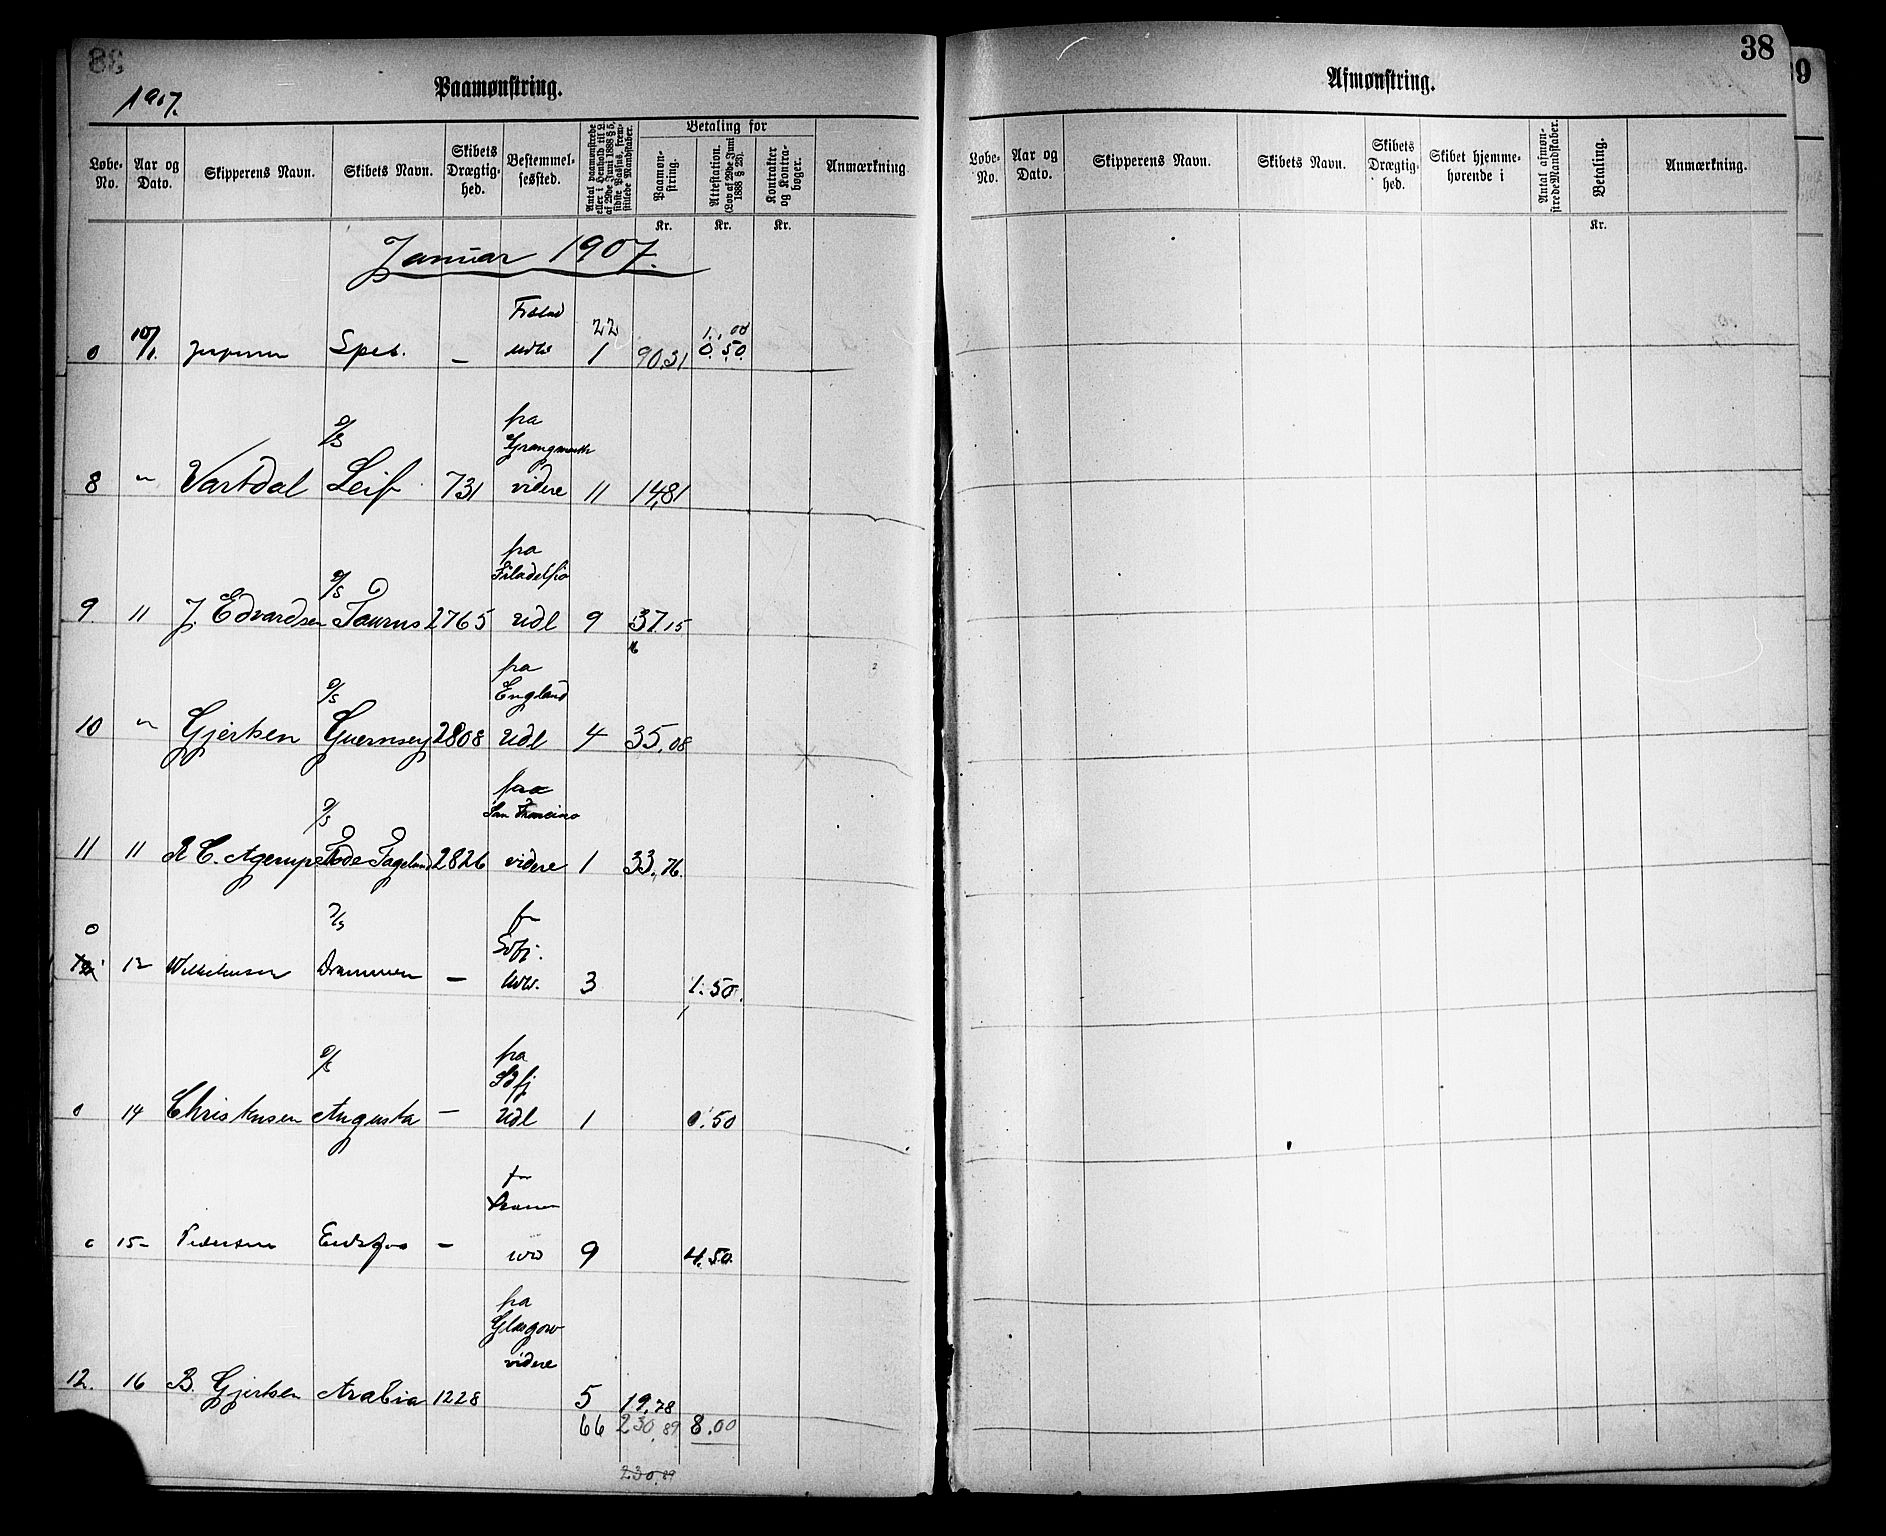 38
1907.
Paamønstring.
Løbe-No. Aar og Dato. Skipperens Navn. Skibets Navn. Skibets Drægtighed. Bestemmelsessted. Antal paamønstrede eller i Henhold til L. af 29de Juni 1888 § 5, sidste Passus, fremstillede Mandskaber. Betaling for Paamønstring. Attestation. (Lov af 29de Juni 1888 § 23). Kontrakter og Kontrabøger. Anmærkning.
Kr. Kr. Kr.
Januar 1907.
22 1.00
0 10/1. Spes. — 1 90.31 0.50.
D/S fra
Grangmouth
8 " Vartdal Leif 731 videre 11 14,81
fra
D/S Filadelfia
9 11 J. Edvardsen Taurus 2765 Udl 9 37.15
fra
D/S England
10 " Gjertsen Guernsey 2808 Udl 4 35,08
fra
D/S San Francisco
11 11 Tode Fagelund 2826 videre 1 33,76.
0
12 Drammen — 3 1.50.
D/S fra
Sdfj
0 14 Christensen Augusta — Udl 1 0.50
15 Pedersen — 9 4.50.
fra
Glasgow
videre
12. 16 B. Gjertsen Arabia 1228 5 19,78
66 230,89 8.00
230,89
38
9
Afmønstring.
Løbe-No. Aar og Dato. Skipperens Navn. Skibets Navn. Skibets Drægtighed. Skibet hjemmehørende i Antal afmønstrede Mandskaber. Betaling. Anmærkning.
Kr.